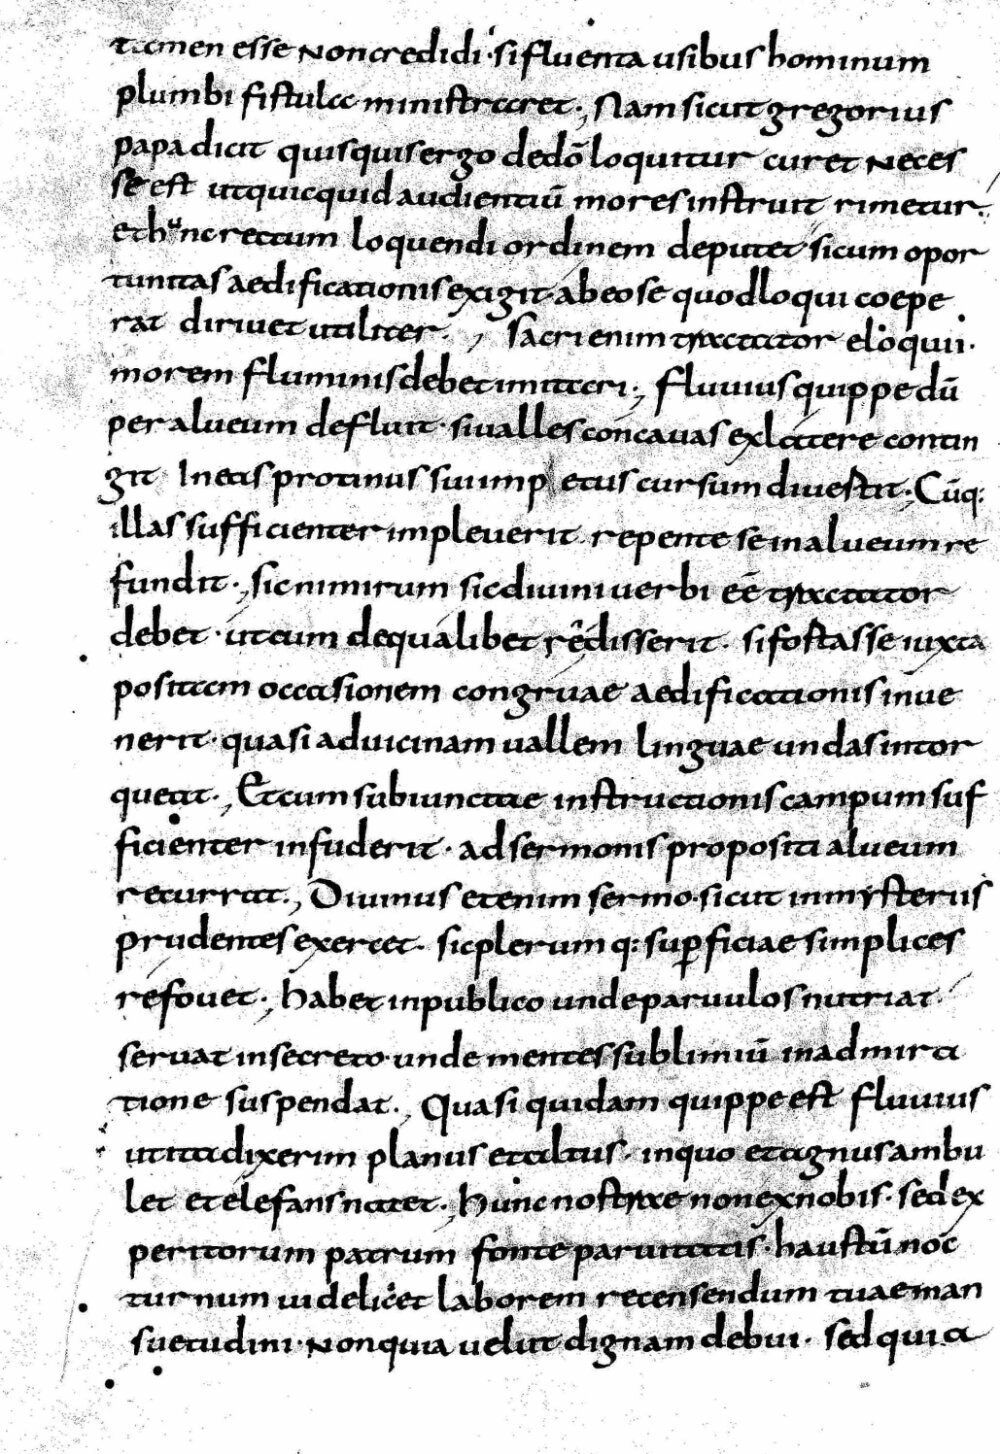 tamen esse non credidi · si fluenta usibus hominum
plumbi fistula ministraret ·, Nam sicut gregorius
papa dicit quisquis ergo de dō loquitur curet neces
se est ut quicquid audientiū mores instruit rimetur.
et hunc rectum loquendi ordinem deputet si cum opor
tunitas aedificationis exigit ab eo se quod loqui coepe
rat dirivet utiliter ., Sacri enim tractator eloquii.
morem fluminis debet imitari ·, Fluuius quippe dū
per alueum defluit · si ualles concauas ex latere contin
git In eas protinus sui impetus cursum diuertit ·, Cūq:
illas sufficienter impleuerit repente se in alueum re
fundit ·, sic nimirum sic diuini uerbi eē tractator
debet · ut cum de qualibet rē disserit · si fortasse iuxta
positam occasionem congruae aedificationis inue
nerit · quasi ad uicinam uallem linguae undas intor
queat ·, Et cum subiunctae instructionis campum suf
ficienter infuderit · ad sermonis propositi alueum
recurrat ., Diuinus etenim sermo · sicut in mysteriis
prudentes exercet · sic plerumq: supficiae simplices
refouet ·, habet in publico unde paruulos nutriat
seruat in secreto unde mentes sublimiū in admira
tione suspendat ., Quasi quidam quippe est fluuius
ut ita dixerim planus et altus · in quo et agnus ambu
let et elefans natet ·, Hunc nostrae non ex nobis · sed ex
peritorum patrum fonte paruitatis · haustū noc
turnum uidelicet laborem recensendum tuae man
suetudini · non quia uelut dignam debui · sed quia